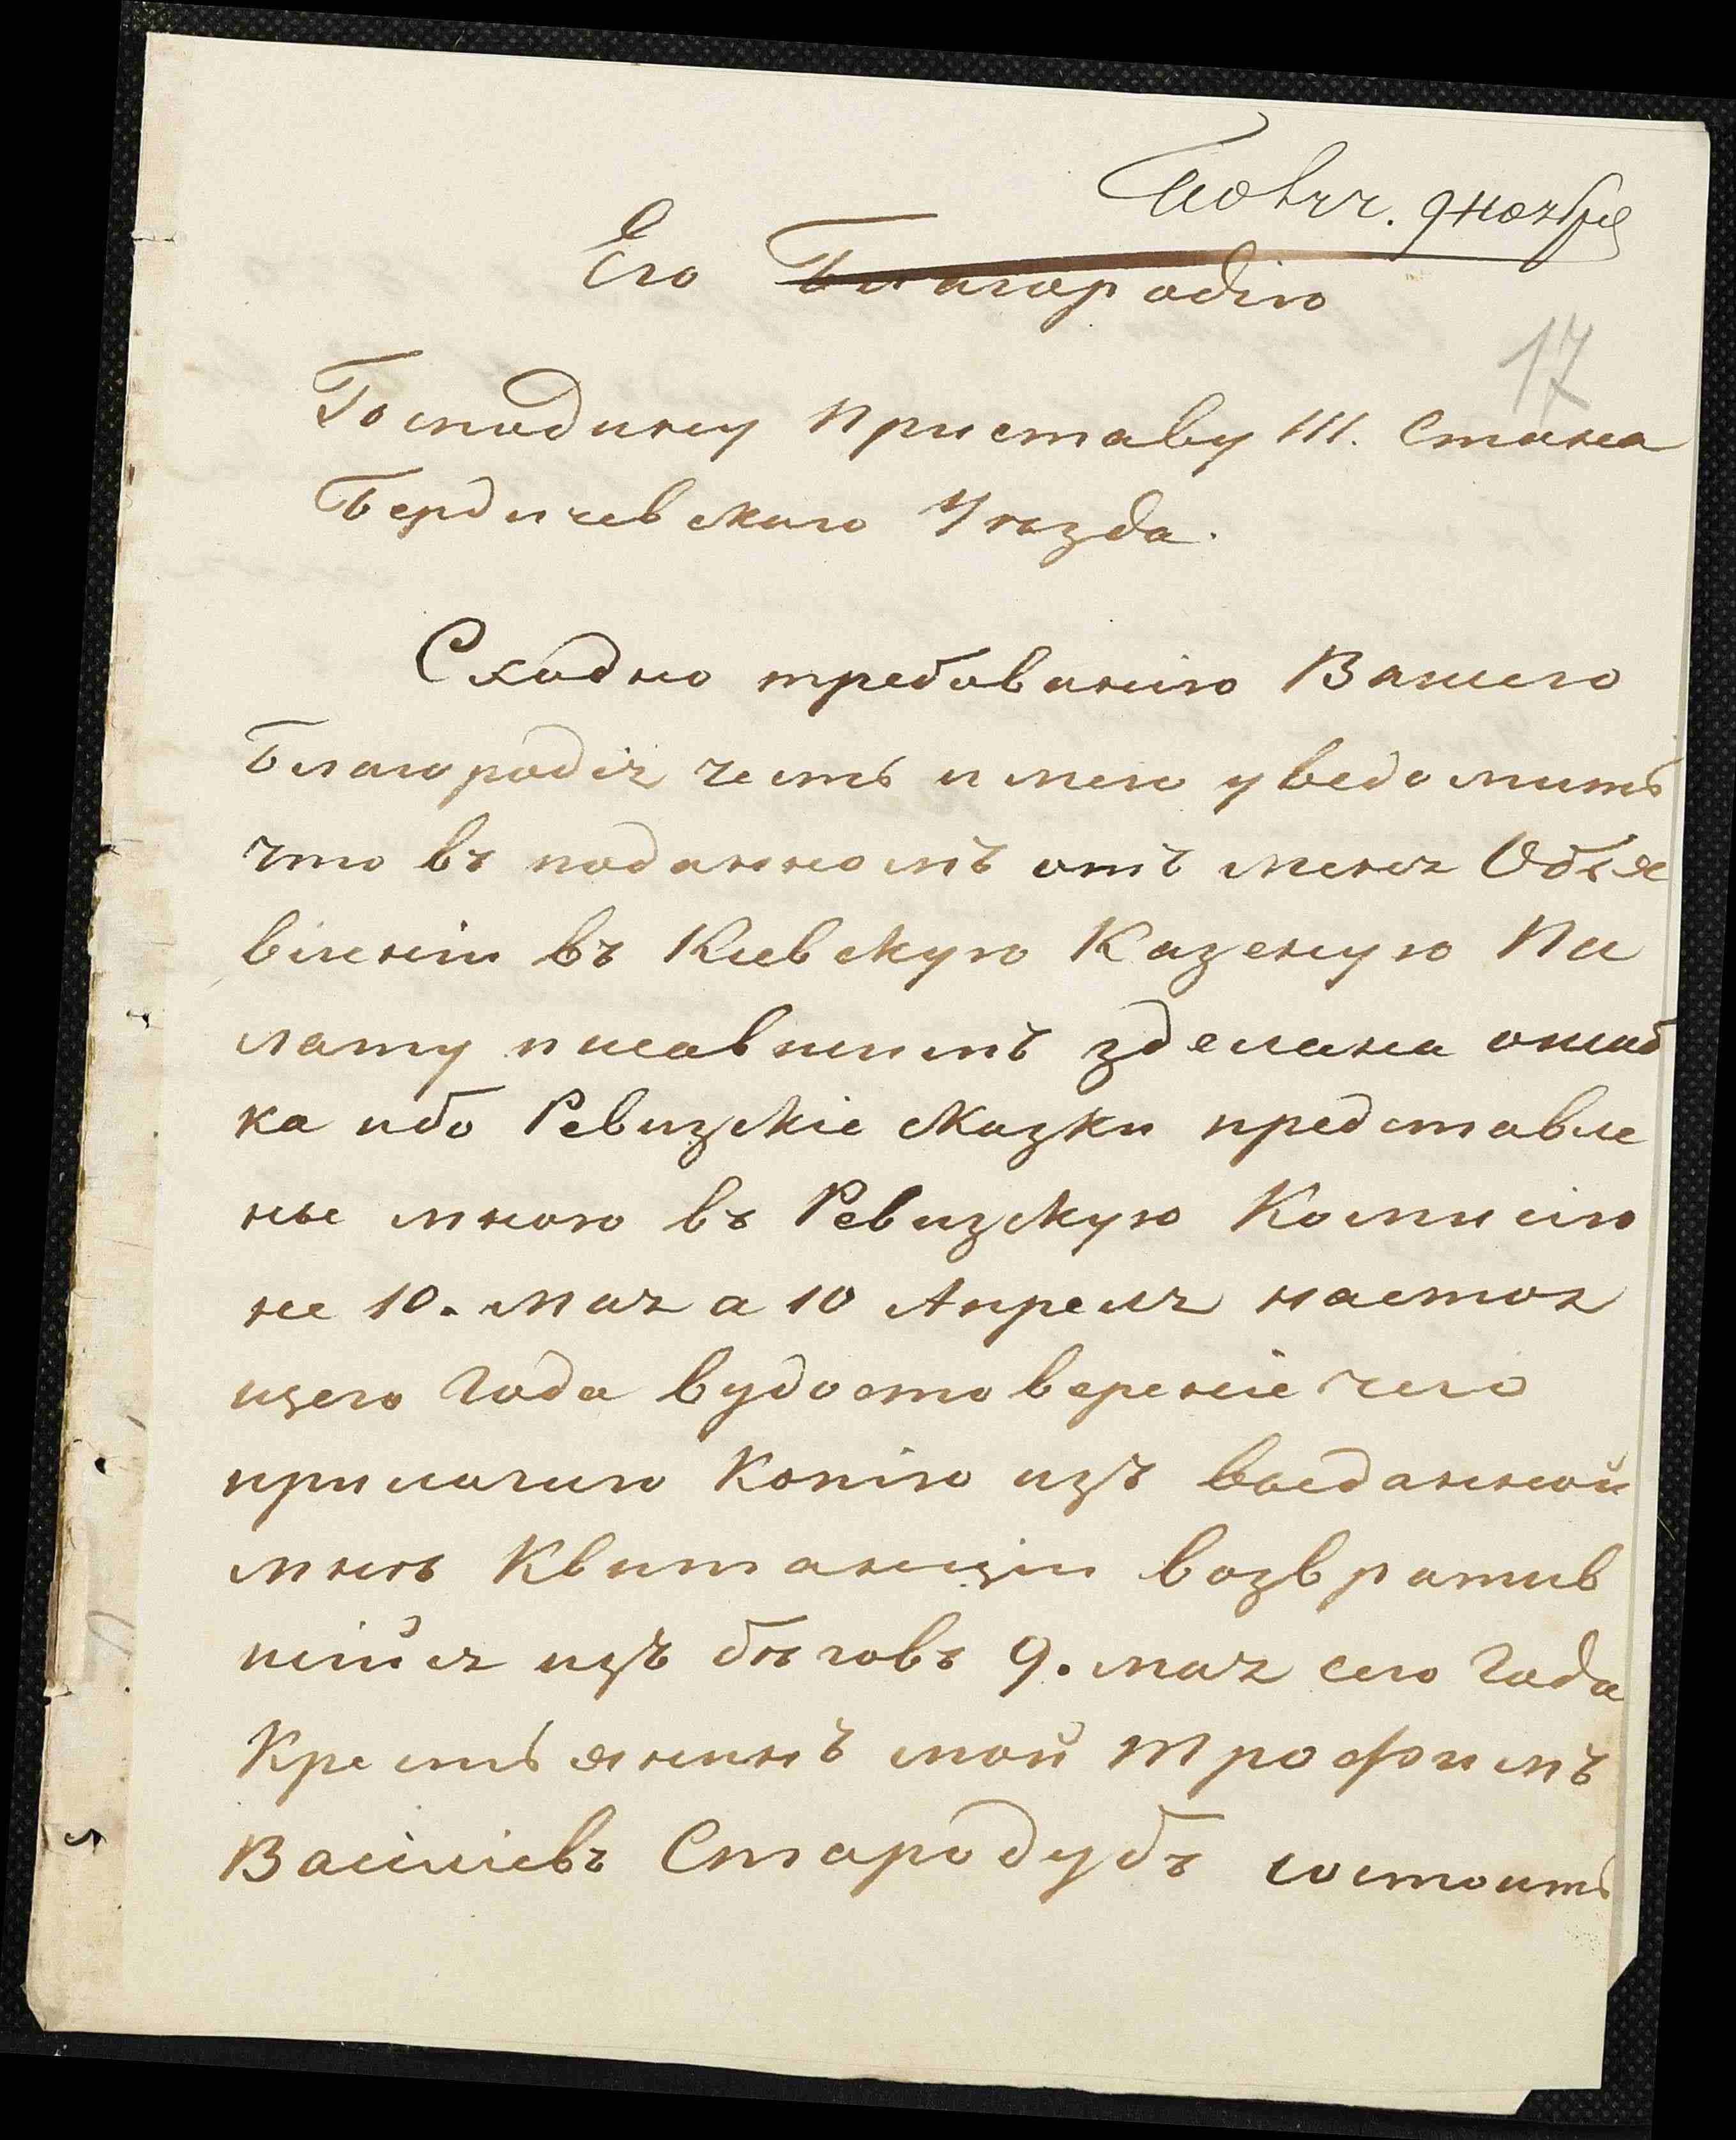 Получ. 9 ноября
Его Благородію
17
Господину Приставу III. Стана
Бердичевскаго Уѣзда.
Сходно требованію Вашего
Благородія честь имею уведомить
что въ поданномъ отъ меня Объя
вленіи въ Киевскую Казеную Па
лату писавшимъ зделана ошиб
ка ибо Ревизскіе сказки представле
ны мною въ Ревизскую Комисію
не 10. мая а 10 Апреля настоя
щего Года вудостоверение чего
прилагаю Копію изъ выданной
мнѣ Квитанціи возвратив
шійся изъ бѣговъ 9. мая сего Года
Крестьянинъ мой Трофимъ
Васіліевъ Стародубъ состоитъ